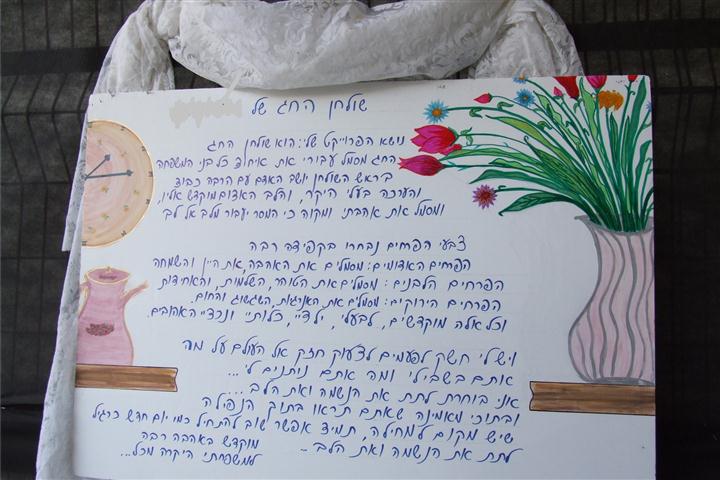 שולחן החג של
נושא הפרוייקט שלי: הוא שולחן החג
החג מסמל עבורי את איחוד כל בני המשפחה
בראש השולחן יושב האדם עם הרבה כבוד
והערכה בעלי היקר, והלב האדום מוקדש אליו,
ומסמל את אהבתי ומקווה כי המסר יעבור מלב אל לב
צבעי הפרחים נבחרו בקפידה רבה
הפרחים האדומים: מסמלים את האהבה, את היין והשמחה
הפרחים הלבנים: מסמלים את הטוהר, השלמות, והאחידות
הפרחים הירוקים: מסמלים את השגשוג והחום.
וכל אלה מוקדשים, לבעלי, ילדיי, כלותיי ונכדיי האהובים.
ויש לי חשק לפעמים לצעוק חזק אל העולם על מה
אותם בשבילי ומה אתם נותנים לי...
אני בוחרת לתת את הנשמה ואת הלב...
ובתוכי מאמינה שאתם תראו בתוך הנפילה
שיש מקום למחילה, תמיד אפשר שוב להתחיל כמו יום חדש כרגיל
לתת את הנשמה ואת הלב..
מוקדש באהבה רבה
למשפחתי היקרה מכל...